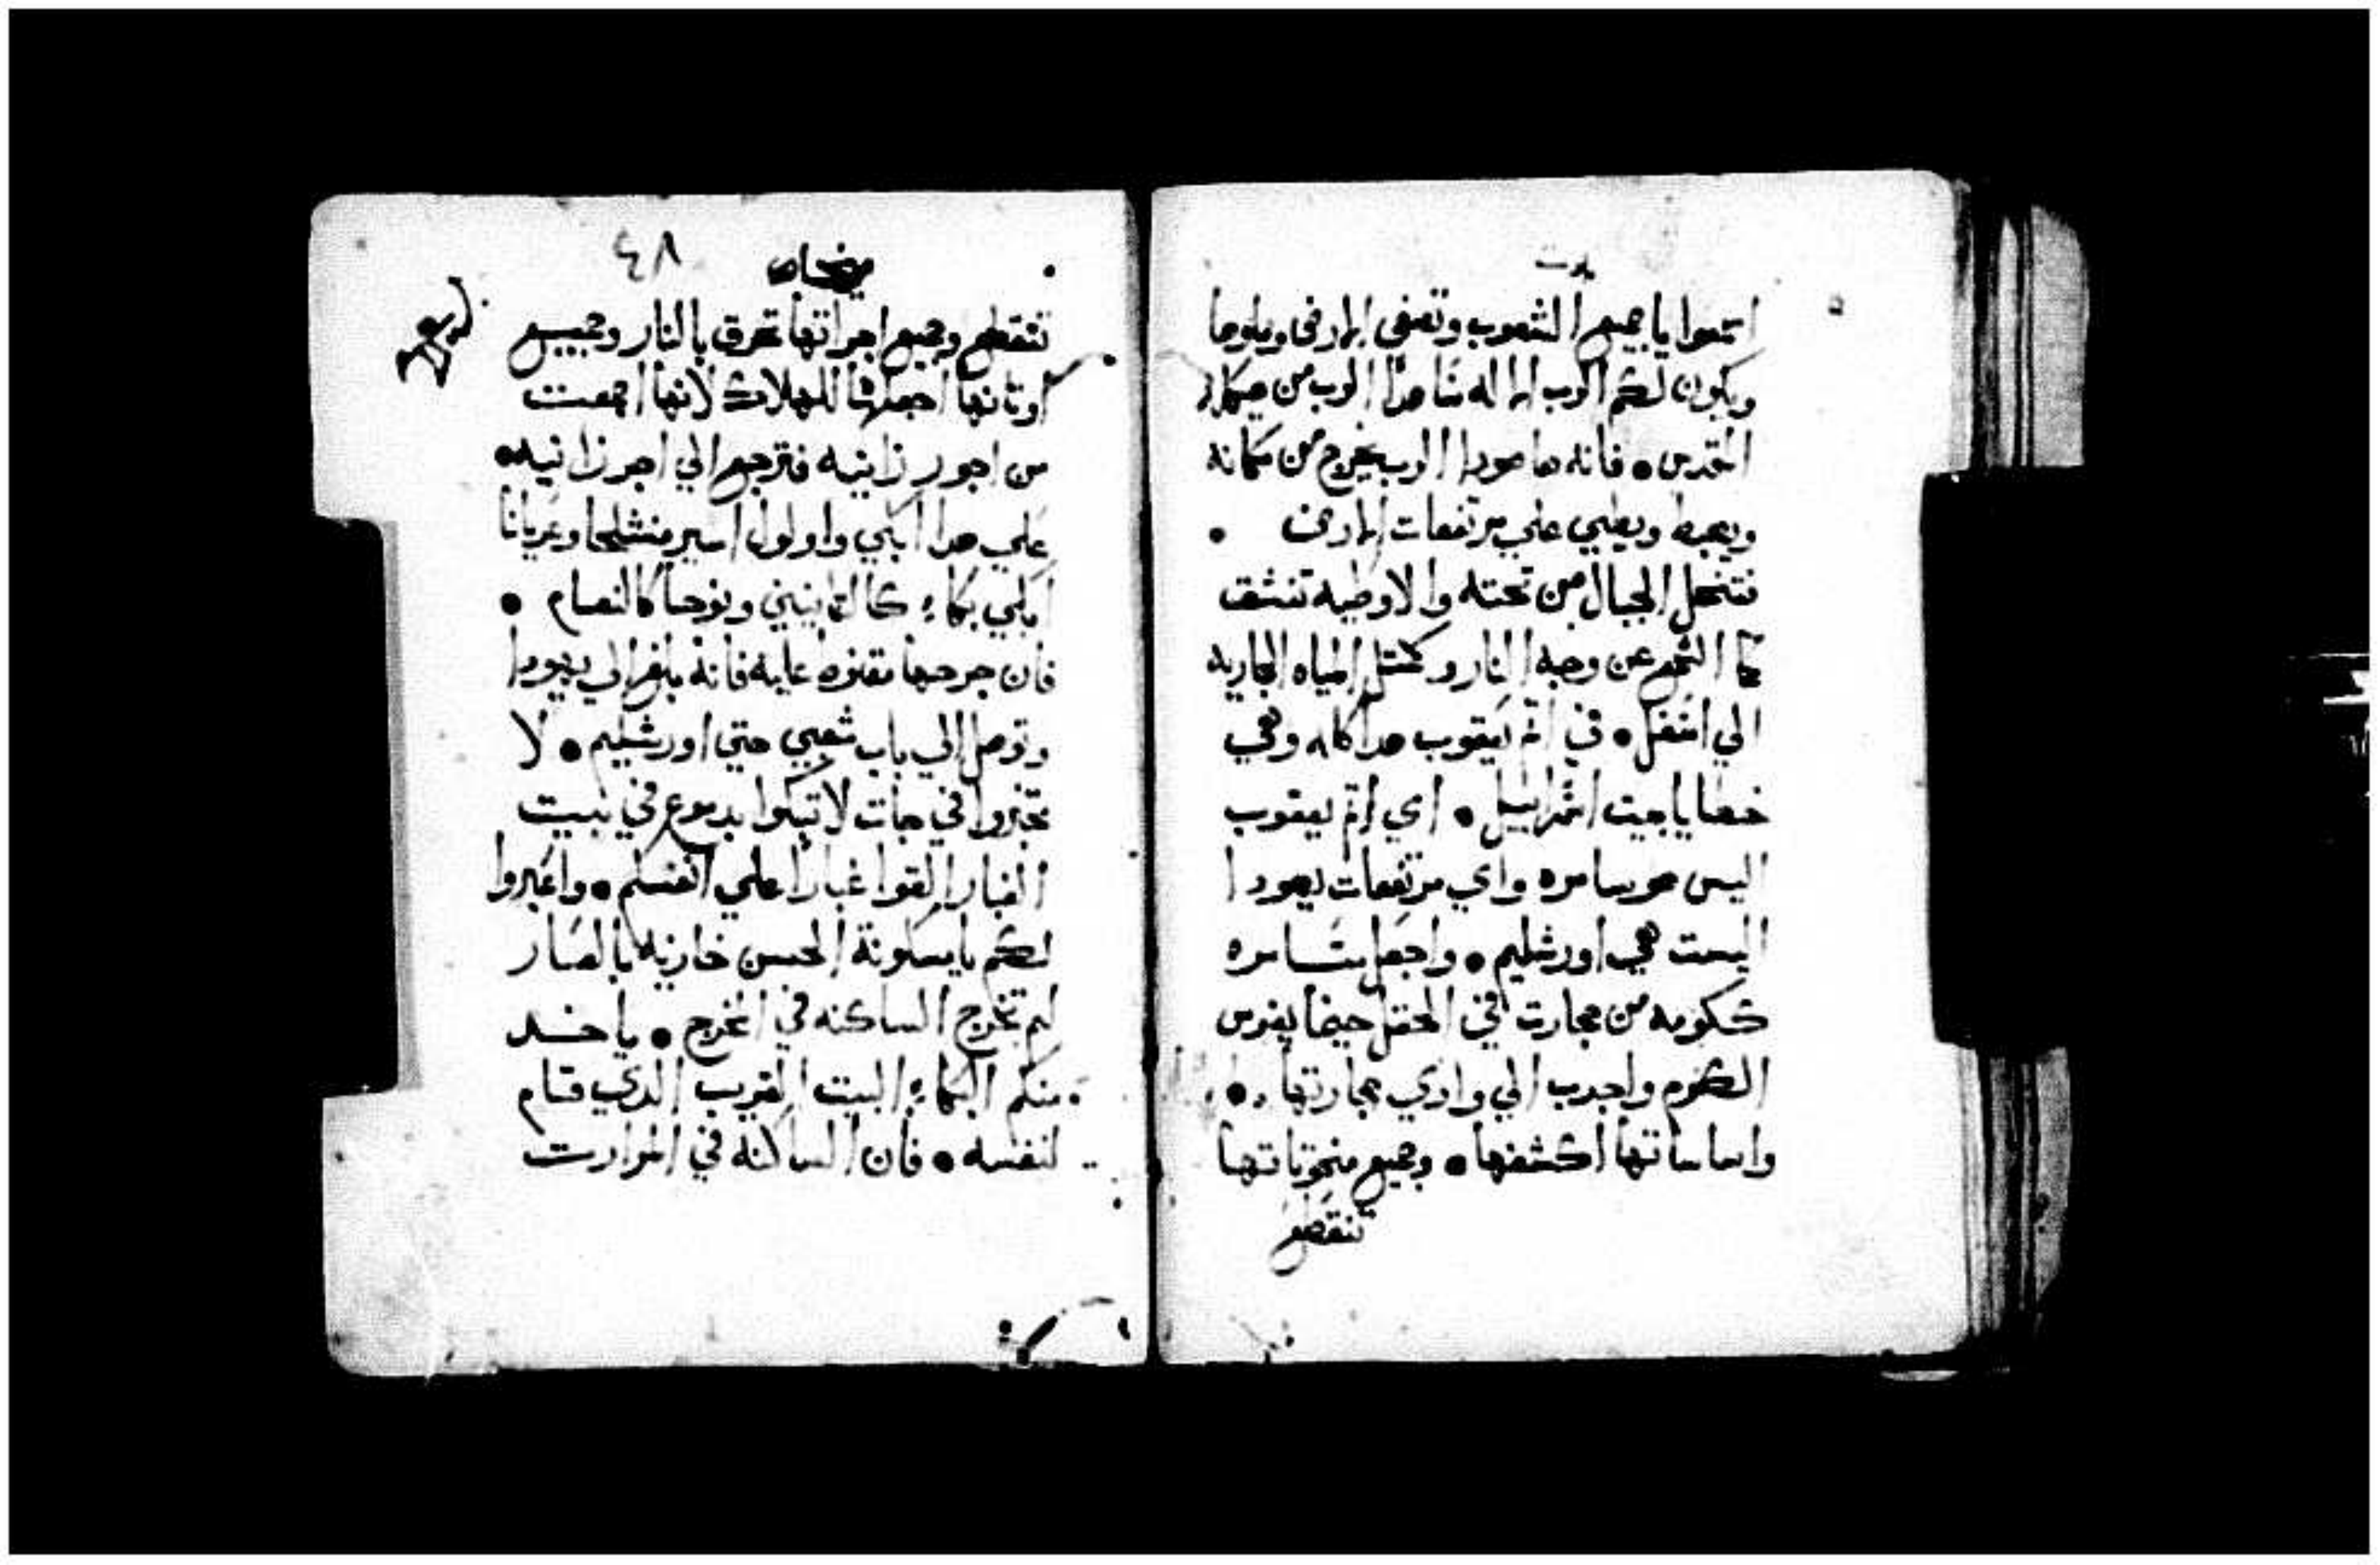 اسمعوا يا جميع الشعوب وتصغي الارض وملوها
ويكون لكم الرب الاله شاهدا الرب من هيكل
القدس • فانه ها هودا الرب يخرج من مكانه
ويهبط ويطي علي مرتفعات الارض •
فتنحل الجبال من تحته والاوطيه تنشق
كما الشمع عن وجه النار وكمثل المياه الجاريه
الي اسفل • في اثم يعقوب هدا كله وفي
خطايا بيت اسراييل • اي اثم يعقوب
اليس هو سامره واي مرتفعات يهودا
اليست هي اورشليم • واجعل سامره
ككومه من حجارت في الحقل حيضا يغرس
الكرم واجدب الي وادي حجارتها •
واساساتها اكشفها • وجميع منحوتاتها
تنقطع
ميخاه ٤٨
تنقطع وجميع اجراتها تحرق بالنار وجميع
اوثانها اجعلها للهلاك لانها اجمعت
من اجور زانيه فترجع الي اجر زانيه •
علي هدا ابكي واولول اسير منشلحا وعريانا
ابكي بكاء كالتنانين ونوحا كالنعام •
فان جرحها مقنوط عليه فانه بلغ الي يهودا
وتوصل الي باب شعبي حتي اورشليم • لا
تخبروا في جات لا تبكوا بدموع في بيت
الغبار القوا غبارا علي انفسكم • واعبروا
لكم يا مسكونة الحسن خازيه بالعار
لم تخرج الساكنه في المخرج • ياخد
منكم البكاء البيت القريب الدي قام
لنفسه • فان الساكنه في المرارت